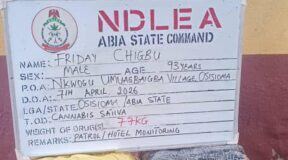 NDLEA
ABIA STATE COMMAND
NAME: FRIDAY CHIGBU
SEX: MALE AGE 93 YEARS
P.O.A: NKWOGU UMUAGBAIGBA VILLAGE, OSISIOMA
D.O.A: 7TH APRIL 2026
LGA/STATE OSISIOMA / ABIA STATE
T.O.D: CANNABIS SATIVA
WEIGHT OF DRUG(S): 7.7KG
REMARKS: PATROL/HOTEL MONITORING